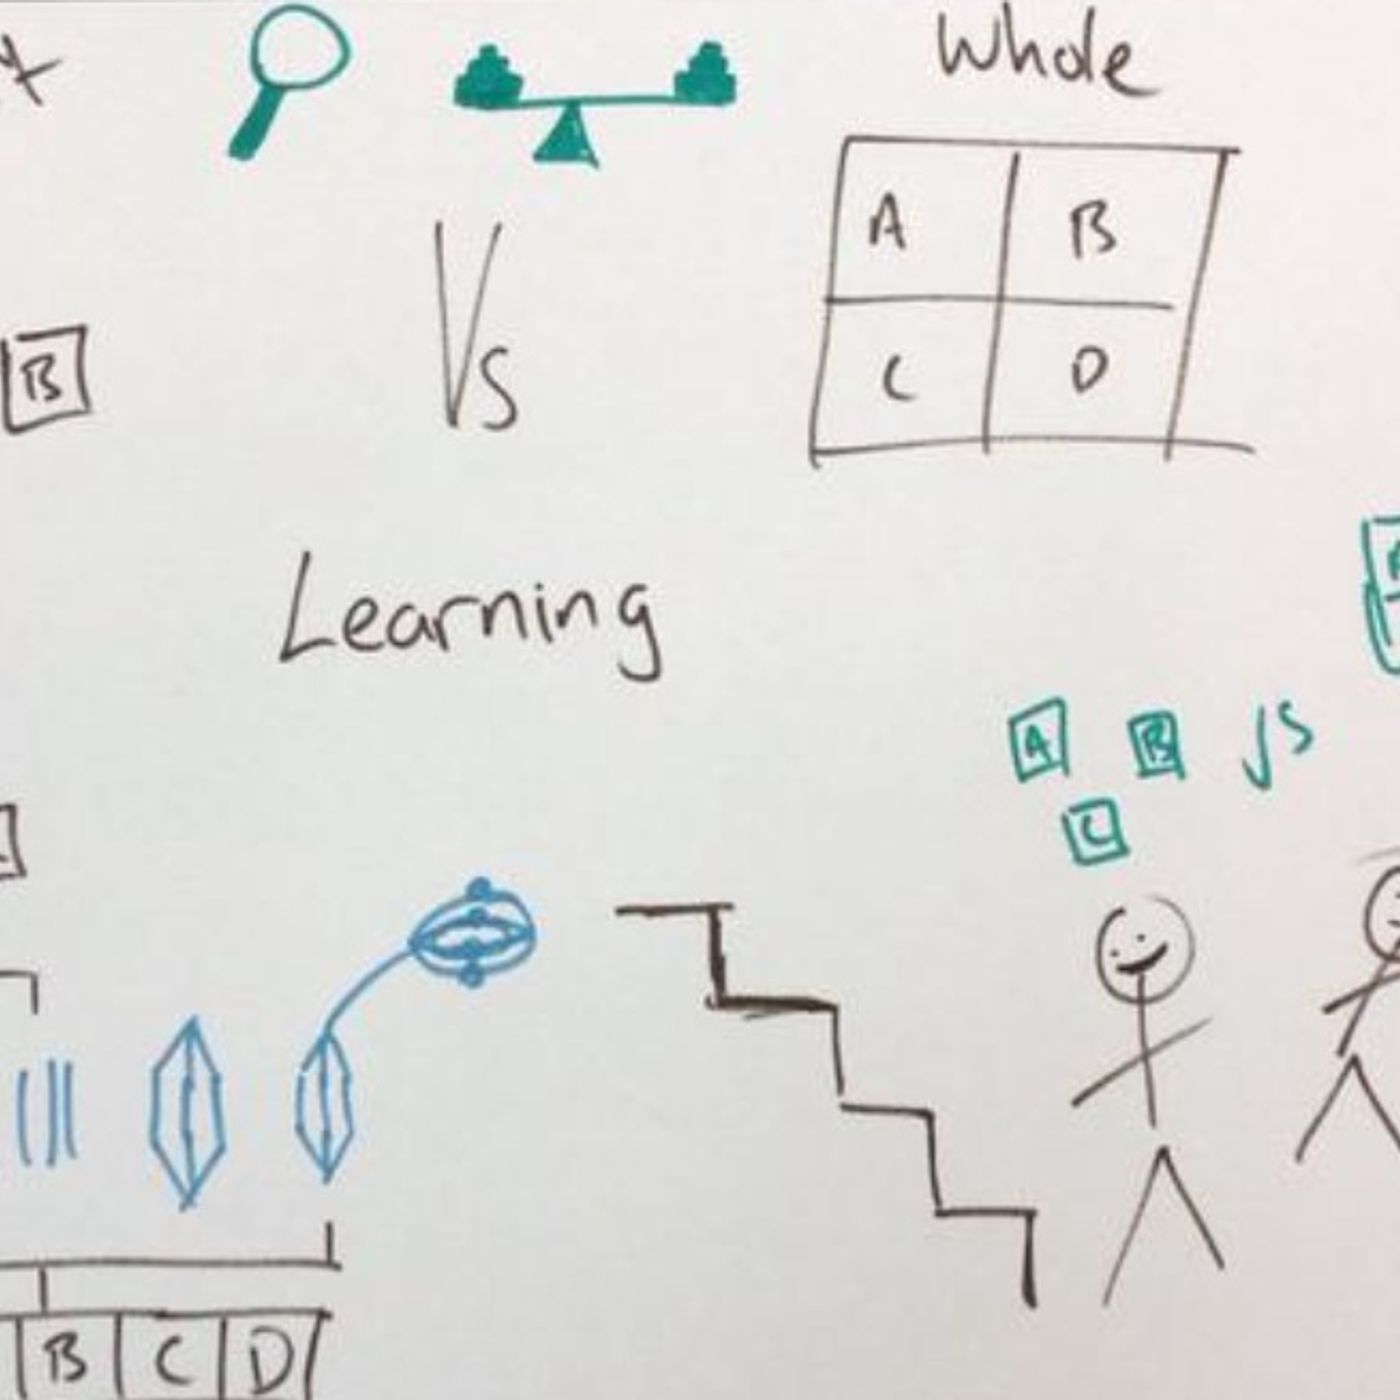 Whole
A B
B
Vs
C D
Learning
A B Vs
C
B C D